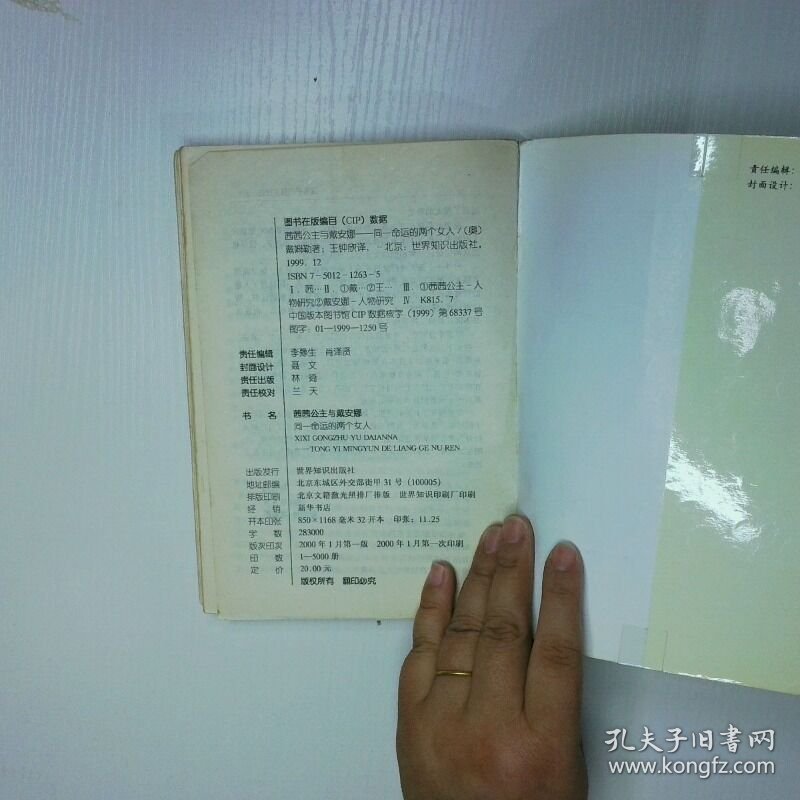 图书在版编目（CIP）数据
茜茜公主与戴安娜——同一命运的两个女人/（奥）
戴姆勒著；王钟欣译．－北京：世界知识出版社，
1999．12
ISBN 7－5012－1263－5
Ⅰ．茜… Ⅱ．①戴…②王… Ⅲ．①茜茜公主－人
物研究②戴安娜－人物研究 Ⅳ K815．7
中国版本图书馆CIP数据核字（1999）第68337号
图字：01—1999—1250号
责任编辑 生 肖泽贤
封面设计 聂 文
责任出版 林 琦
责任校对 兰 天
书 名 茜茜公主与戴安娜
同一命运的两个女人
XIXI GONGZHU YU DAIANNA
——TONG YI MINGYUN DE LIANG GE NU REN
出版发行 世界知识出版社
地址邮编 北京东城区外交部街甲31号（100005）
排版印刷 北京文籍激光照排厂排版 世界知识印刷厂印刷
经 销 新华书店
开本印张 850×1168毫米32开本 印张：11.25
字 数 283000
版次印次 2000年1月第一版 2000年1月第一次印刷
印 数 1—5000册
定 价 20.00元
版权所有 翻印必究
责任编辑：
封面设计：
孔夫子旧书网
www.kongfz.com